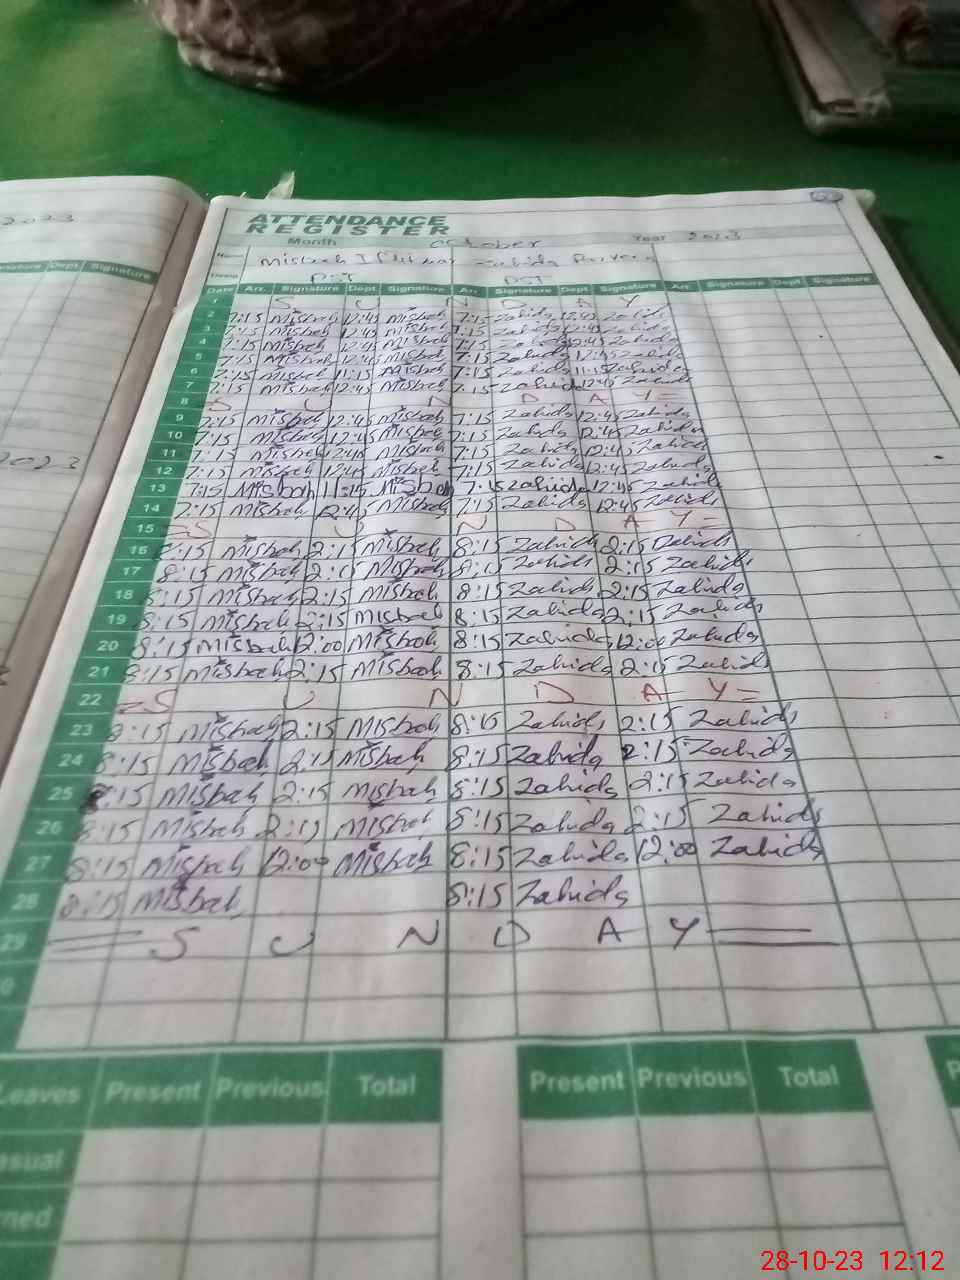 2023
ATTENDANCE
REGISTER
Month October Year 2023
Misbah Iftikhar Zahida Parveen
PST PST
Date Arr. Signature Dept. Signature Arr. Signature Dept. Signature Arr. Signature Dept. Signature
1 S U N D A Y
2 7:15 Misbah 12:45 Misbah 7:15 Zahida 12:45 Zahida
3 7:15 Misbah 12:45 Misbah 7:15 Zahida 12:45 Zahida
4 7:15 Misbah 12:45 Misbah 7:15 Zahida 12:45 Zahida
5 7:15 Misbah 12:45 Misbah 7:15 Zahida 12:45 Zahida
6 7:15 Misbah 11:15 Misbah 7:15 Zahida 11:15 Zahida
7 7:15 Misbah 12:45 Misbah 7:15 Zahida 12:45 Zahida
8 S U N D A Y
9 7:15 Misbah 12:45 Misbah 7:15 Zahida 12:45 Zahida
10 7:15 Misbah 12:45 Misbah 7:15 Zahida 12:45 Zahida
11 7:15 Misbah 12:45 Misbah 7:15 Zahida 12:45 Zahida
12 7:15 Misbah 12:45 Misbah 7:15 Zahida 12:45 Zahida
13 7:15 Misbah 11:15 Misbah 7:15 Zahida 12:45 Zahida
14 7:15 Misbah 12:45 Misbah 7:15 Zahida 12:45 Zahida
15 S U N D A Y
16 8:15 Misbah 2:15 Misbah 8:15 Zahida 2:15 Zahida
17 8:15 Misbah 2:15 Misbah 8:15 Zahida 2:15 Zahida
18 8:15 Misbah 2:15 Misbah 8:15 Zahida 2:15 Zahida
19 8:15 Misbah 2:15 Misbah 8:15 Zahida 2:15 Zahida
20 8:15 Misbah 12:00 Misbah 8:15 Zahida 12:00 Zahida
21 8:15 Misbah 2:15 Misbah 8:15 Zahida 2:15 Zahida
22 S U N D A Y
23 8:15 Misbah 2:15 Misbah 8:15 Zahida 2:15 Zahida
24 8:15 Misbah 2:15 Misbah 8:15 Zahida 2:15 Zahida
25 8:15 Misbah 2:15 Misbah 8:15 Zahida 2:15 Zahida
26 8:15 Misbah 2:15 Misbah 8:15 Zahida 2:15 Zahida
27 8:15 Misbah 12:00 Misbah 8:15 Zahida 12:00 Zahida
28 8:15 Misbah 8:15 Zahida
29 S U N D A Y
Leaves Present Previous Total Present Previous Total
28-10-23 12:12